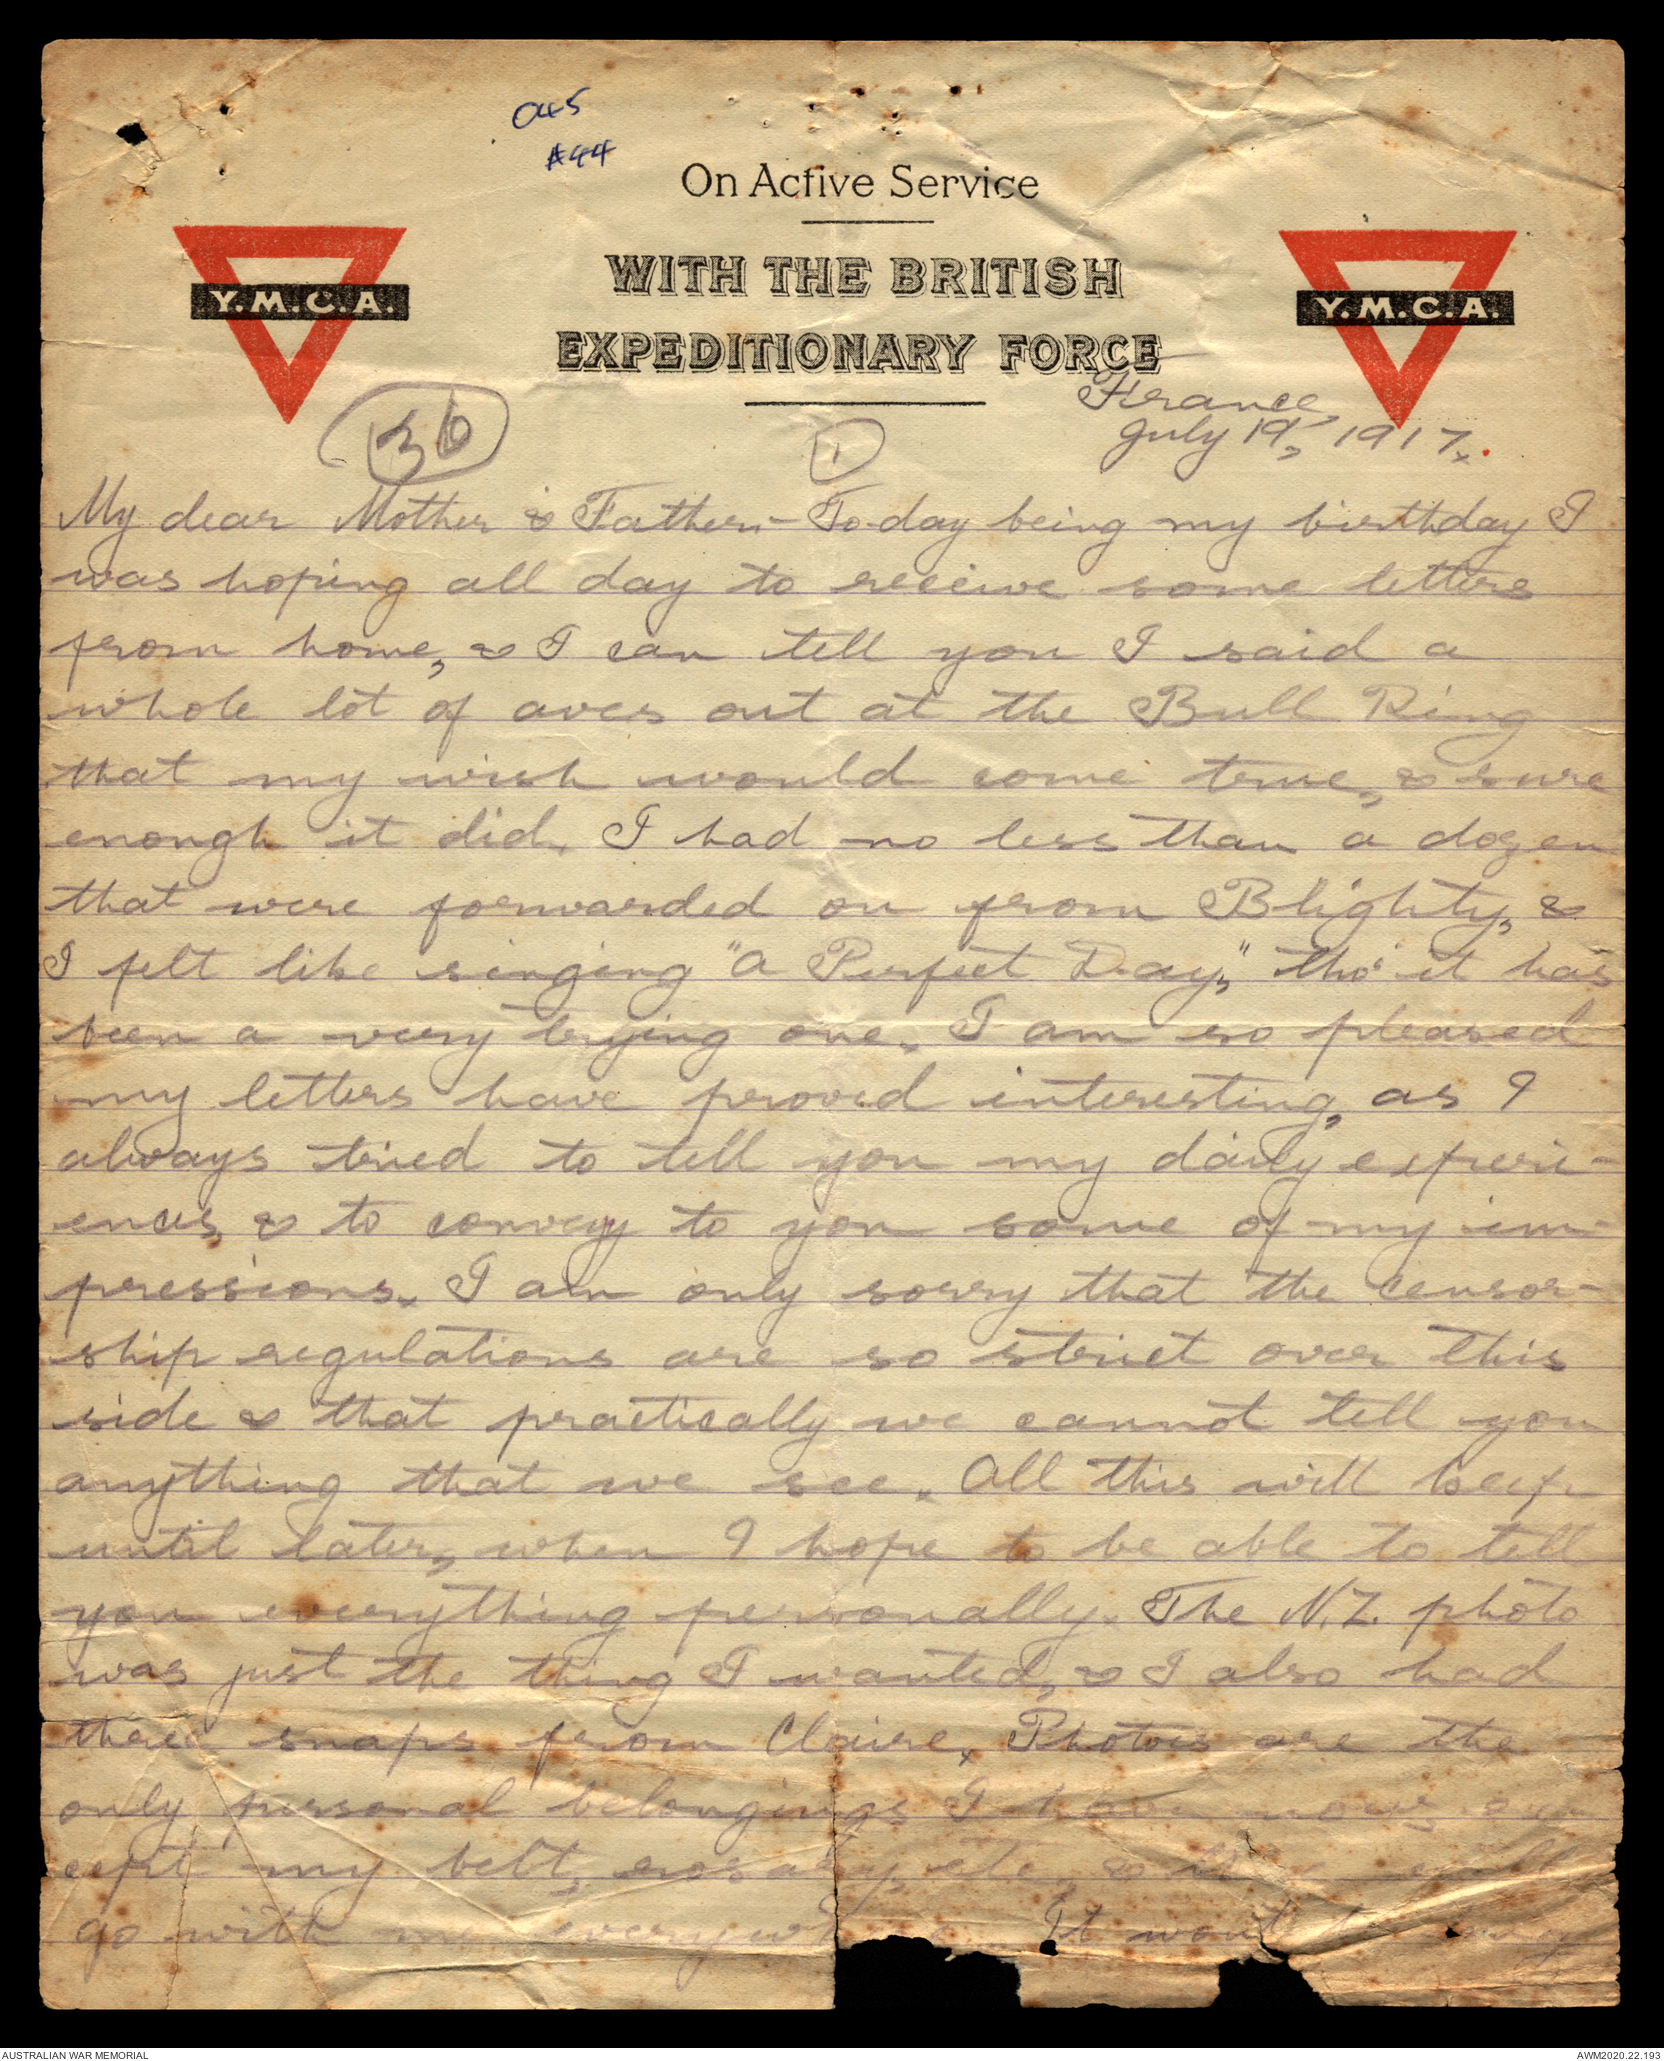 045
#44
On Active Service
WITH THE BRITISH
EXPEDITIONARY FORCE
Y.M.C.A.
Y.M.C.A.
France,
July 19, 1917.
36
1
My dear Mother & Father:- To-day being my birthday I
was hoping all day to receive some letters
from home, & I can tell you I said a
whole lot of aves out at the Bull Ring
that my wish would come true, & sure
enough it did. I had no less than a dozen
that were forwarded on from Blighty, &
I felt like singing "A Perfect Day," tho' it has
been a very trying one. I am so pleased
my letters have proved interesting, as I
always tried to tell you my daily experi-
ences, & to convey to you some of my im-
pressions. I am only sorry that the censor-
ship regulations are so strict over this
side & that practically we cannot tell you
anything that we see. All this will keep
until later, when I hope to be able to tell
you everything personally. The N.Z. photo
was just the thing I wanted, & I also had
three snaps from Claire. Photos are the
only personal belongings I have now, ex-
cept my belt, rosary, etc, &
go with me It wont be long
AUSTRALIAN WAR MEMORIAL
AWM2020.22.193